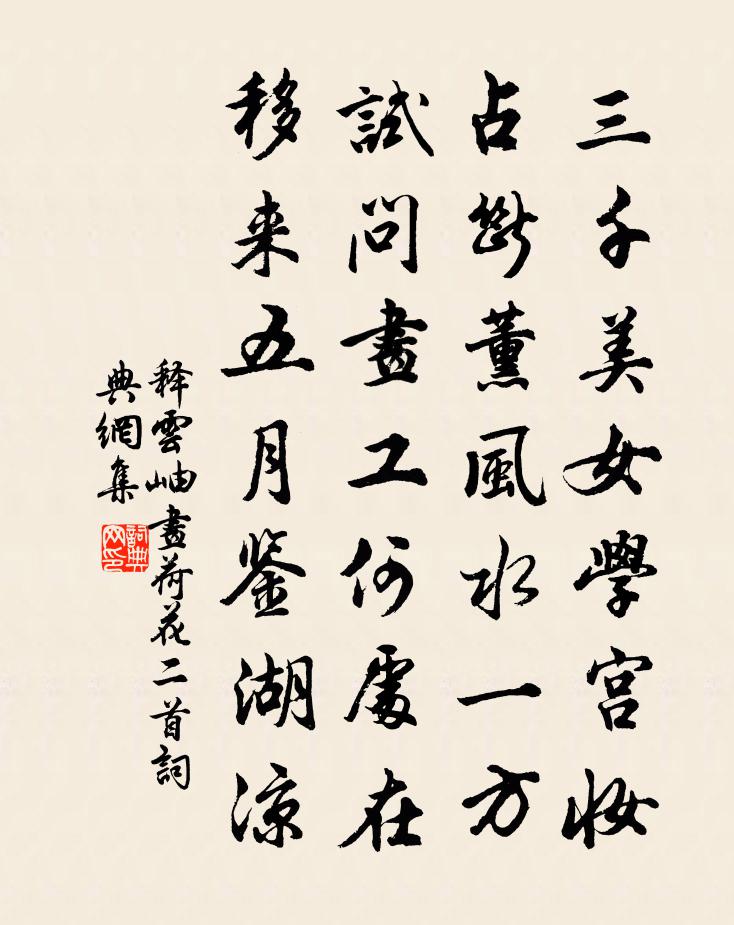 三千美女學宮妝
占斷薰風水一方
試問畫工何處在
移来五月鉴湖涼
释雲岫畫荷花二首詞
典網集
詞典
网印